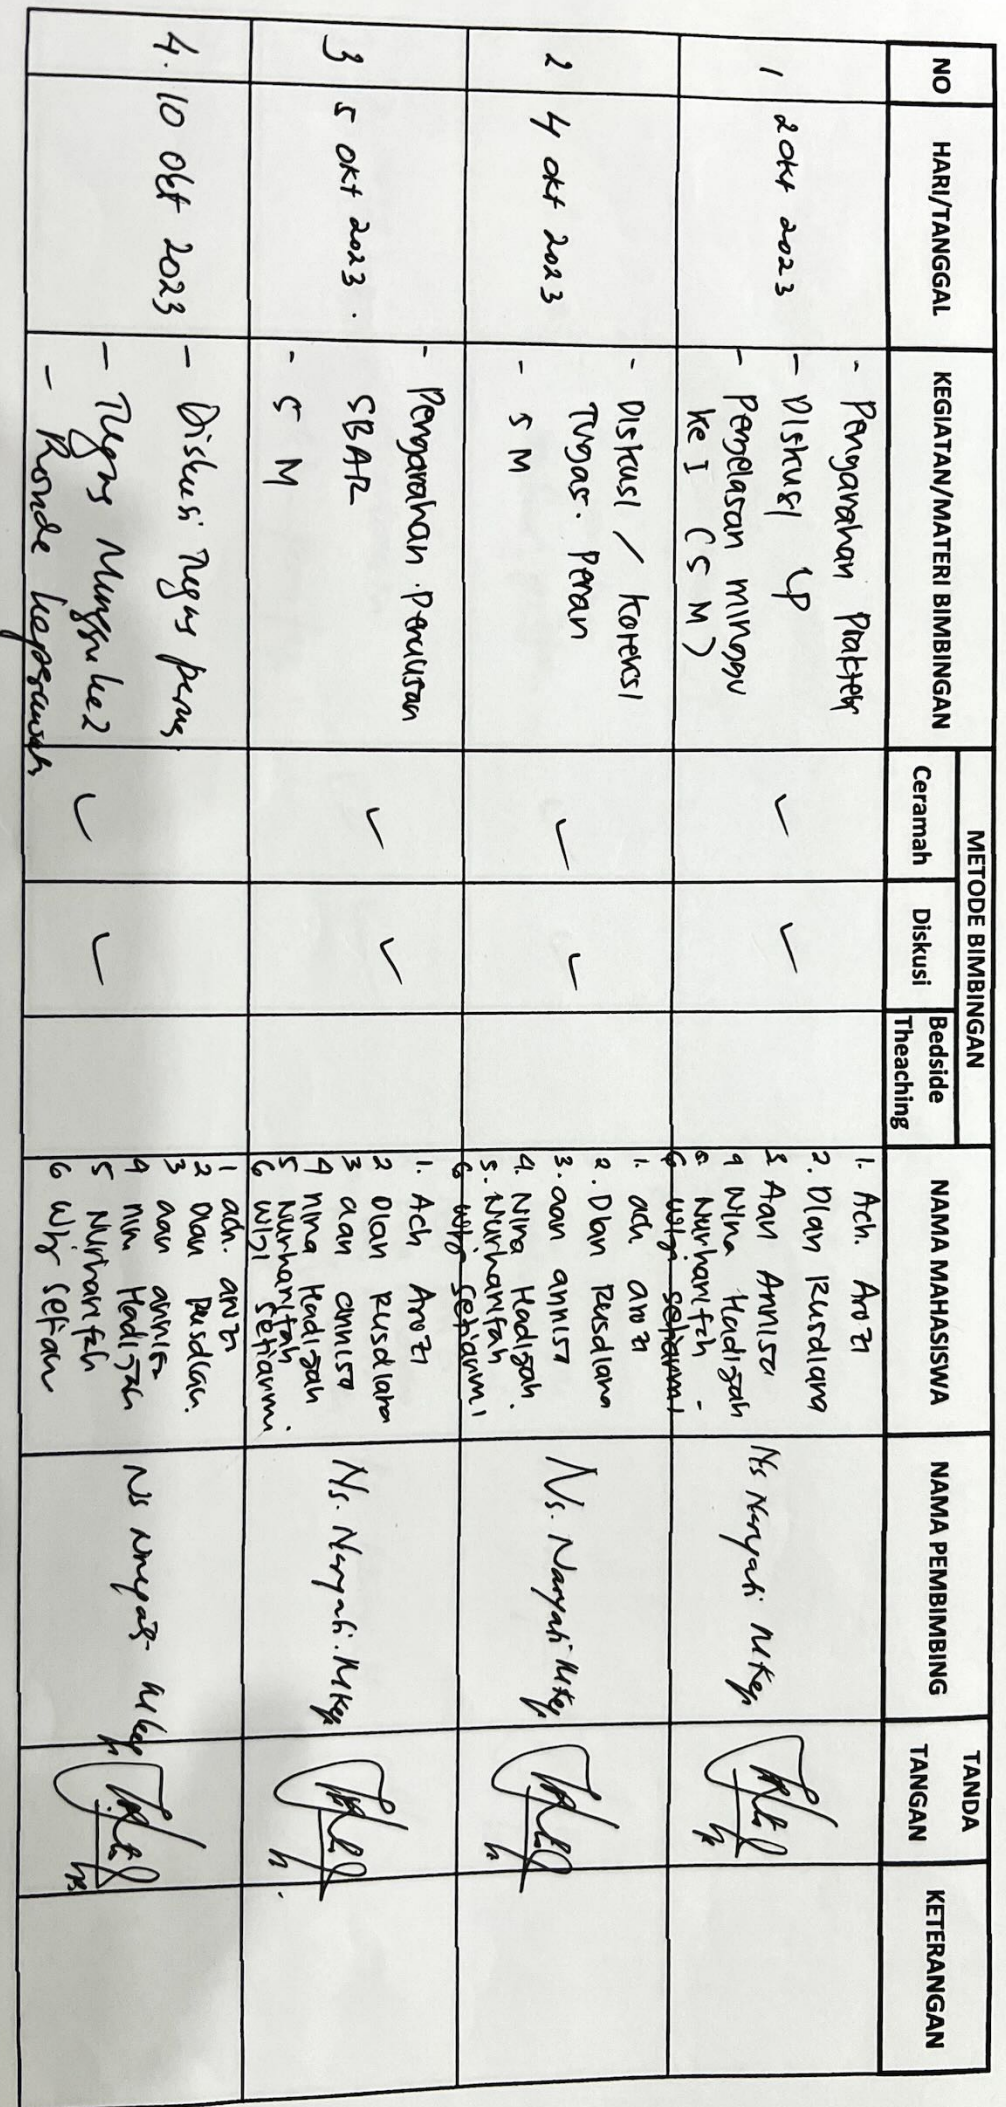 NO
HARI/TANGGAL
KEGIATAN/MATERI BIMBINGAN
METODE BIMBINGAN
Ceramah
Diskusi
Bedside
Theaching
NAMA MAHASISWA
NAMA PEMBIMBING
TANDA
TANGAN
KETERANGAN
1
2 Okt 2023
- Pengarahan Praktek
- Diskusi LP
- Penjelasan minggu
ke I (5 M)
✓
✓
1. Ach. Arozi
2. Dian Rusdiana
3. Aan Annisa
4 Nina Hadizah
Nurhanifah
6 Wigi Setiarmi
Ns Naryati Mkep
2
4 Okt 2023
- Diskusi / Koreksi
Tugas. Peran
- 5 M
✓
✓
1. ach arozi
2. Dian Rusdiana
3. aan annisa
4. Nina Hadizah.
5. Nurhanifah
6 Wigi Setiarmi
Ns. Naryati Mkep
3
5 Okt 2023.
- Pengarahan Penulisan
SBAR
- 5 M
✓
✓
1. Ach Arozi
2 Dian Rusdiana
3 aan annisa
4 Nina Hadizah
5 Nurhanifah
6 Wigi Setiarmi.
Ns. Naryati. Mkep
4.
10 Okt 2023
- Diskusi Tugas peran
- Tugas Minggu ke 2
- Ronde keperawatan
✓
✓
1 ach. arozi
2 Dian Rusdian.
3 aan annisa
4 Nina Hadizah
5 Nurhanifah
6 Wigi Setian
Ns Naryati Mkep